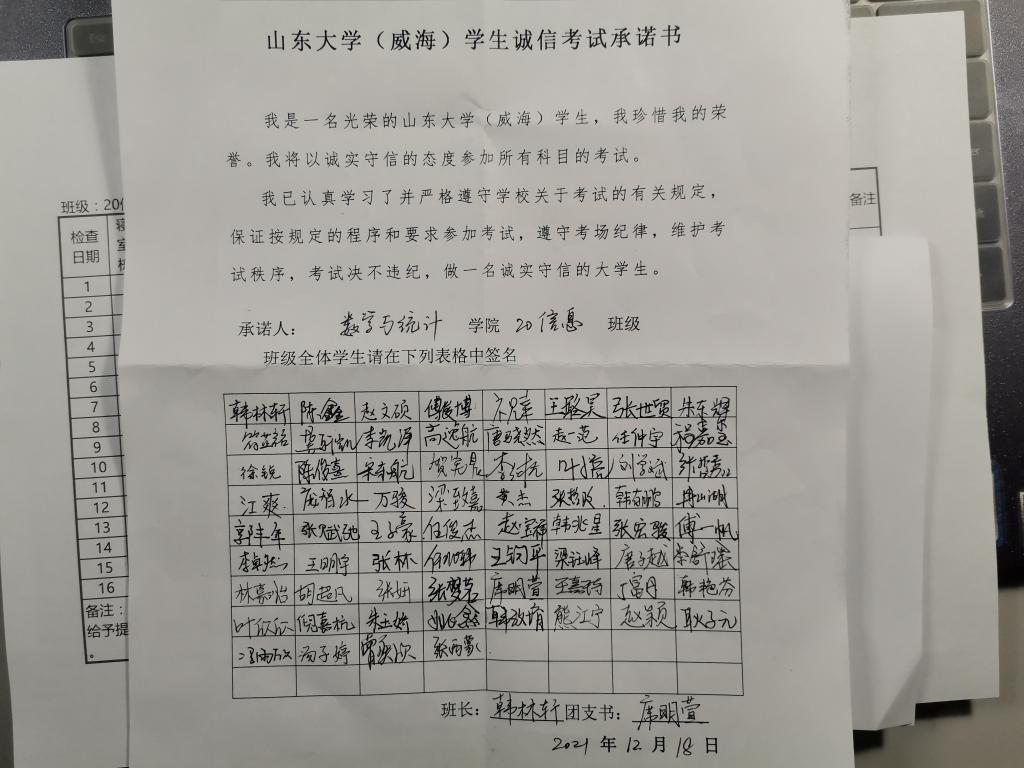 山东大学（威海）学生诚信考试承诺书
我是一名光荣的山东大学（威海）学生，我珍惜我的荣
誉。我将以诚实守信的态度参加所有科目的考试。
我已认真学习了并严格遵守学校关于考试的有关规定，
保证按规定的程序和要求参加考试，遵守考场纪律，维护考
试秩序，考试决不违纪，做一名诚实守信的大学生。
承诺人： 数学与统计 学院 20信息 班级
班级全体学生请在下列表格中签名
韩林轩 陈鑫 赵文硕 傅俊博 王璐昊 张世贤 朱东辉
李凯泽 高远航 赵一范 任仲宇
徐锐 陈俊熹 宋有航 贺完晨 叶亮 刘学斌
江爽 庞裕冰 万骏 梁致嘉 黄杰 韩有鹏
郭丰年 张斌弛 王子豪 任俊杰 赵宝楠 韩兆星 张宏骏 傅一帆
李卓然 王明宇 张林 王钧平 梁钰峰 唐子越
林嘉怡 胡超凡 张妍 张梦茗 席明萱 丁富月 韩艳芬
叶欣欣 倪嘉杭 朱玉娇 姚鑫 韩放堉 熊江宁 赵颖 耿子元
汤子婷 张雨蒙
班长： 韩林轩 团支书： 席明萱
2021 年 12 月 18 日
班级：20信
检查
日期
1
2
3
4
5
6
7
8
9
10
11
12
13
14
15
16
备注：
给予提
备注